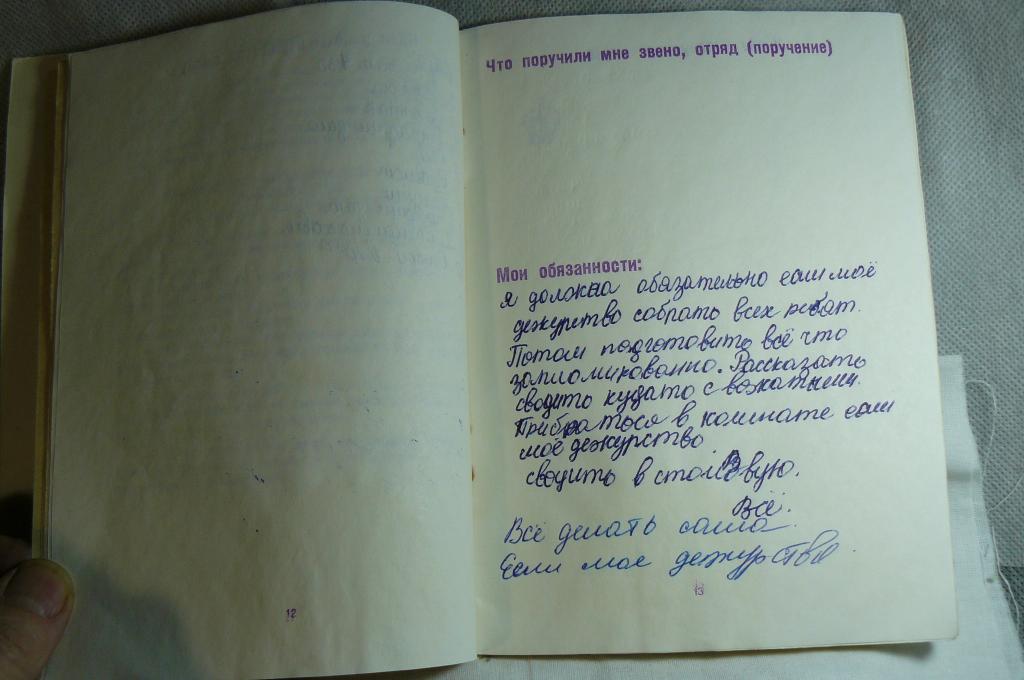 Что поручили мне звено, отряд (поручение)
Мои обязанности:
я должна обязательно если моё
дежурство собрать всех ребят.
Потом подготовить всё что
запломикованно. Рассказать
сводить кудато с вожатыми.
Прибраться в комнате если
моё дежурство
сводить в столовую.
Всё.
Всё делать сама.
Если мое дежурство
12
13